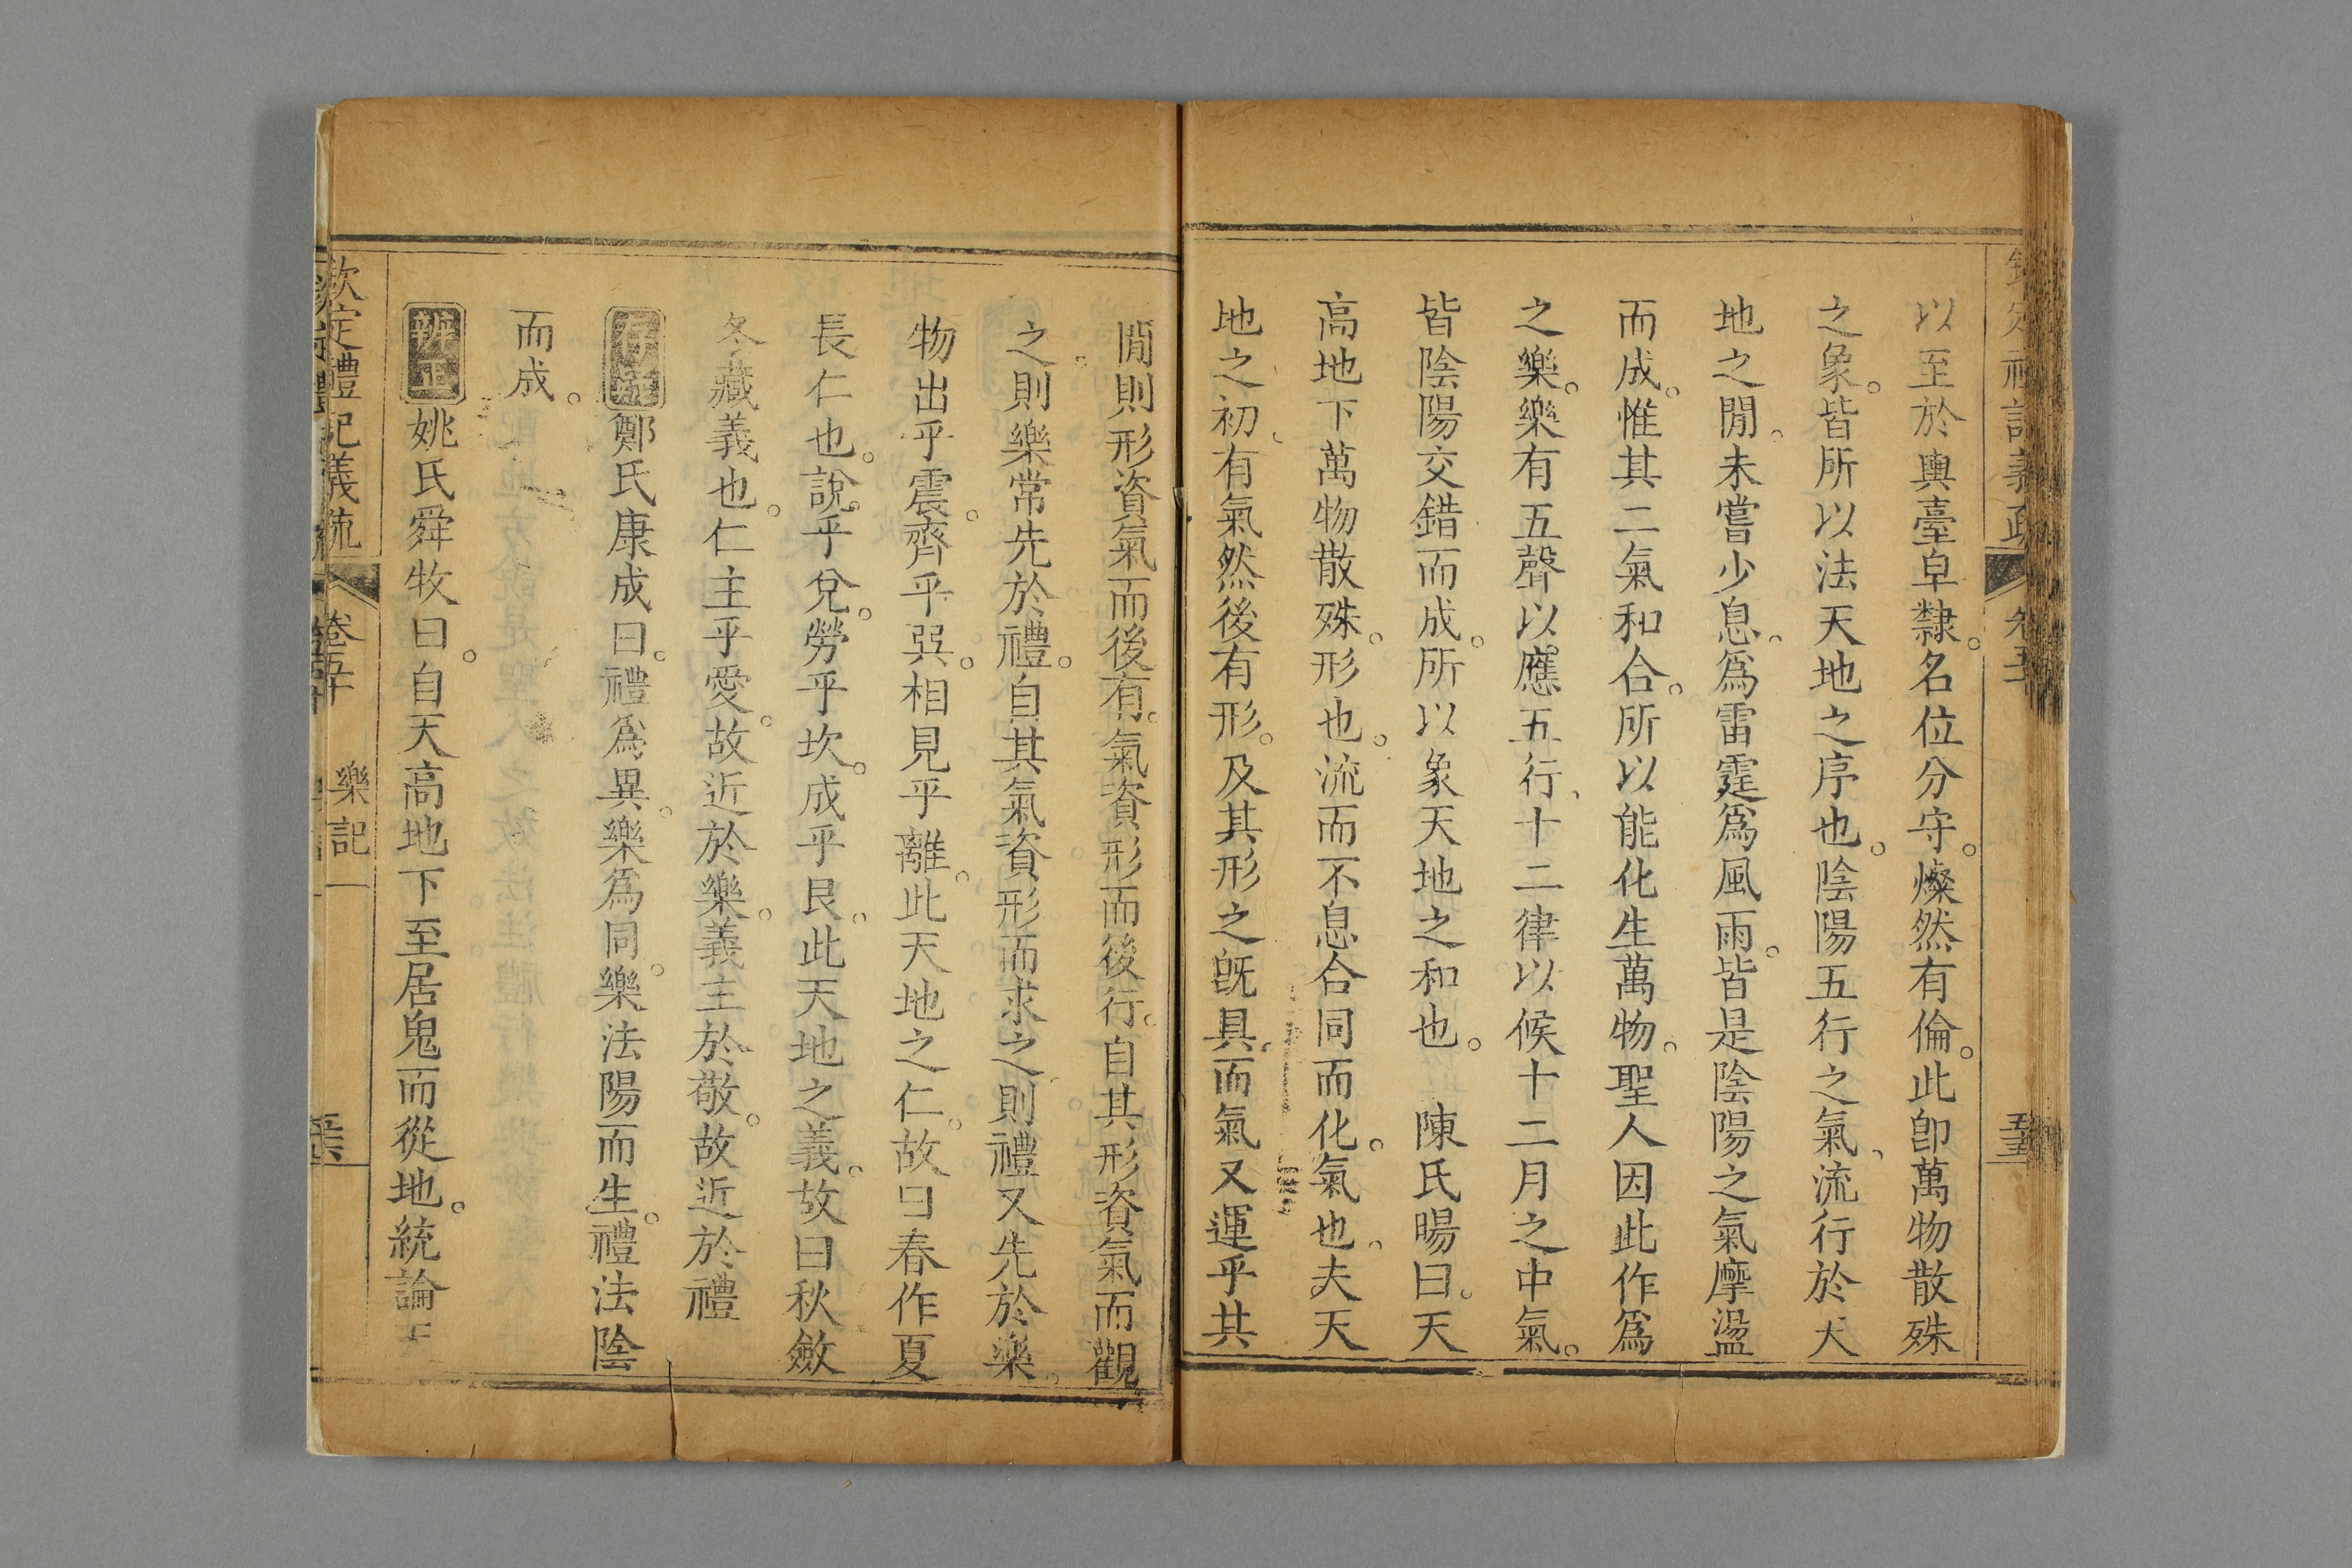 以至於輿臺皁隸。名位分守。燦然有倫。此卽萬物散殊
之象。皆所以法天地之序也。陰陽五行之氣、流行於天
地之閒。未嘗少息。爲雷霆爲風雨。皆是陰陽之氣摩盪
而成。惟其二氣和合。所以能化生萬物。聖人因此作爲
之樂。樂有五聲以應五行、十二律以候十二月之中氣。
皆陰陽交錯而成。所以象天地之和也。 陳氏暘曰。天
高地下萬物散殊。形也。流而不息合同而化。氣也。夫天
地之初、有氣然後有形。及其形之旣具。而氣又運乎其
閒則形資氣而後有。氣資形而後行。自其形資氣而觀
之。則樂常先於禮。自其氣資形而求之。則禮又先於樂。
物出乎震。齊乎巽。相見乎離。此天地之仁。故曰春作夏
長仁也。說乎兌。勞乎坎。成乎艮。此天地之義。故曰秋斂
冬藏義也。仁主乎愛。故近於樂。義主於敬。故近於禮
存疑 鄭氏康成曰。禮爲異。樂爲同。樂法陽而生。禮法陰
而成。
辨正 姚氏舜牧曰。自天高地下至居鬼而從地。統論天
欽定禮記義疏 卷五十 樂記一